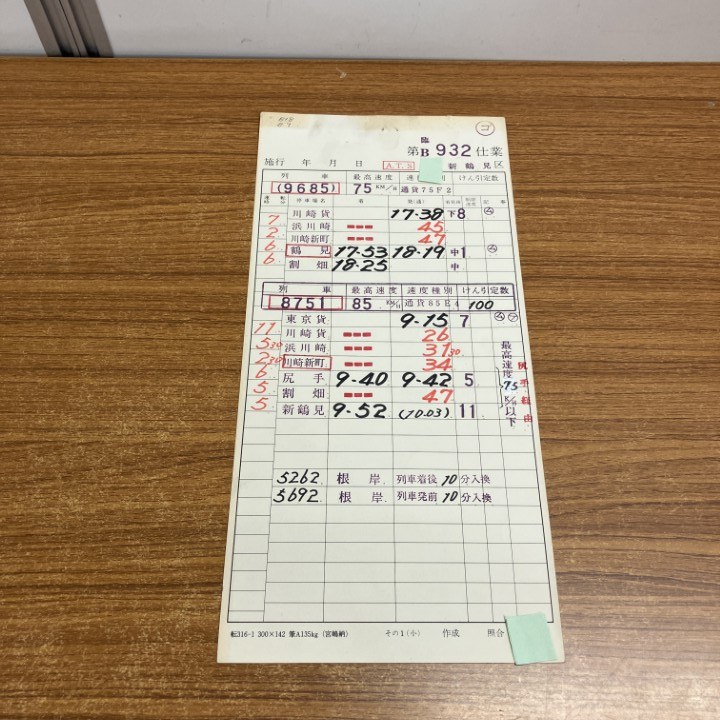 コ
臨
第B932仕業
施行 年 月 日 A.T.S 新鶴見
列車 最高速度 速 別 けん引定数
(9685) 75 KM/H 通貨75F2
運転時分 停車場名 着 発(通) 記事
7 川崎貨 17-38 下8
2 浜川崎 45
6 川崎新町 47
6 鶴見 17-53 18-19 中1
割畑 18-25 中
列車 最高速度 速度種別 けん引定数
8751 85 KM/H 通貨85E4 100
東京貨 9-15 7
11 川崎貨 26
5 30 浜川崎 31 30
2 30 川崎新町 34
6 尻手 9-40 9-42 5
5 割畑 47
5 新鶴見 9-52 (10.03) 11
最高速度75K/H以下
尻手経由
5262 根岸 列車着後10分入換
5692 根岸 列車発前10分入換
転316-1 300×142 筆A135kg (宮嶋納) その1(小) 作成 照合